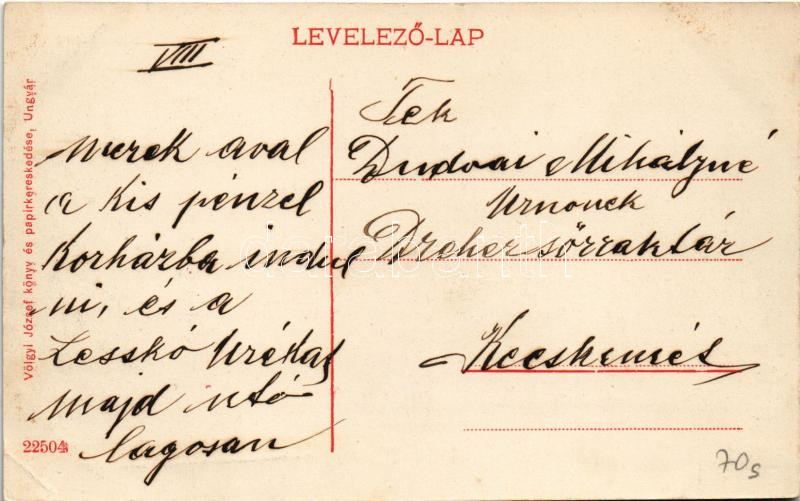 LEVELEZŐ-LAP
VIII
merek aval
a kis pénzel
korházba indul
ni, és a
Lesskó Urékat
majd utó
lagosan
Tek
Dudvai Mihályné
Urnonek
Dreher sörraktár
Kecskemét
Völgyi József könyv és papirkereskedése, Ungvár
22504
70s